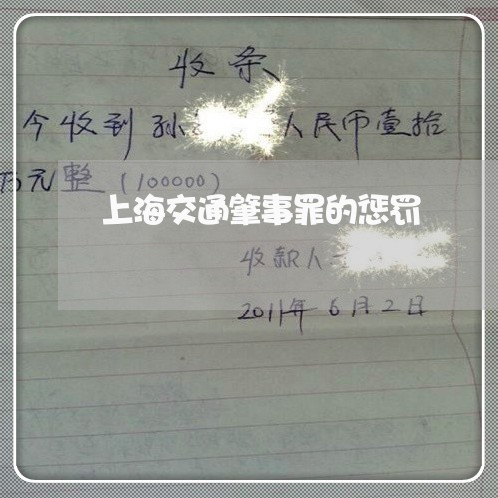 收条
今收到孙人民币壹拾
万元整(100000)
上海交通肇事罪的惩罚
收款人
2011年6月2日